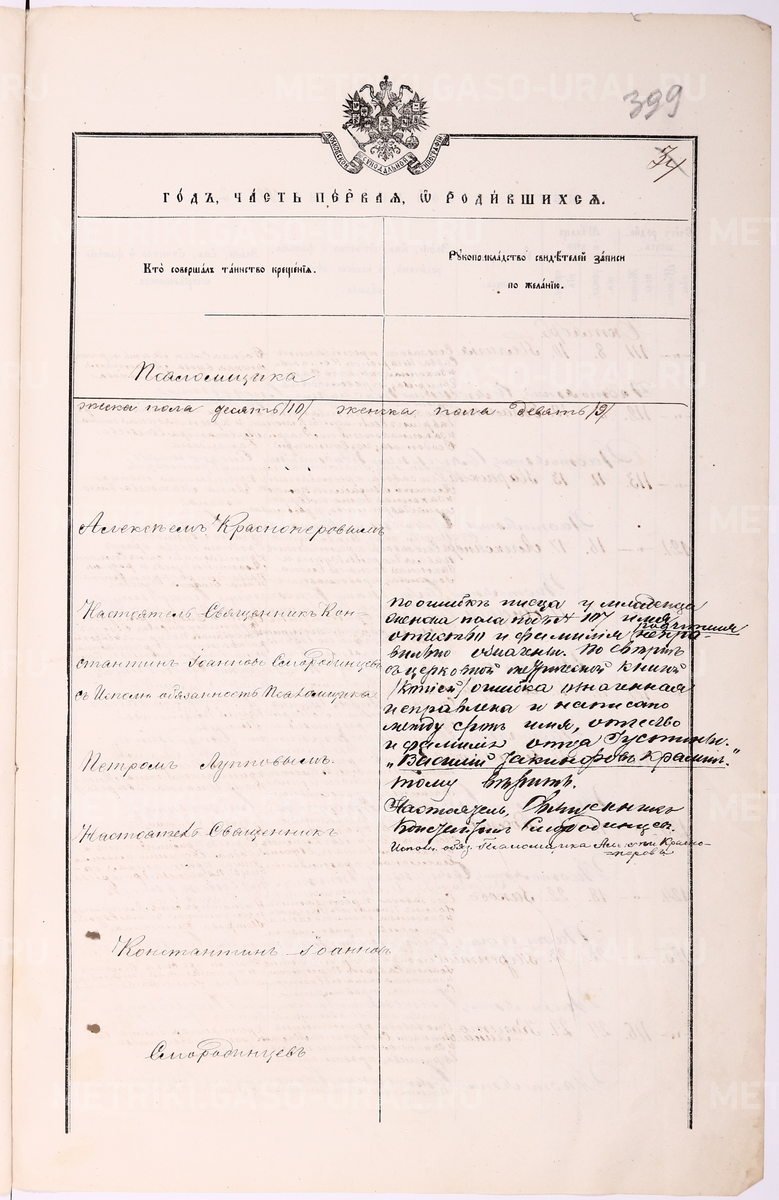 399
34
МОСКОВСКОЙ СѴНОДАЛЬНОЙ ТИПОГРАФІИ
ГОДЪ, ЧАСТЬ ПЕРВАЯ, Ѡ РОДИВШИХСЯ.
Кто совершалъ таинство крещенія.
Рукоприкладство свидѣтелей записи
по желанію.
Псаломщика
жеска пола десять /10/ женска пола девять /9/
Алексѣемъ Красноперовымъ
Настоятель Священникъ Кон-
стантинъ Іоанновъ Смородинцевъ
съ Исполн обязанность Псаломщика
Петромъ Лупповымъ
Настоятель Священникъ
Константинъ Іоанновъ
Смородинцевъ
По ошибкѣ писца у младенца
женска пола подъ № 107 имя
отчество и фамилія родителя непра-
вильно означены. По свѣркѣ
съ церковной метрической книгой
ошибка означенная
исправлена и написано
между строкъ имя, отчество
и фамилія отца
"Василій Іакинфовъ
тому вѣрить.
Настоятель, Священникъ
Константинъ Смородинцевъ.
Исполн. обяз. Псаломщика Алексѣй Красно-
перовъ
METRIKI.GASO-URAL.RU